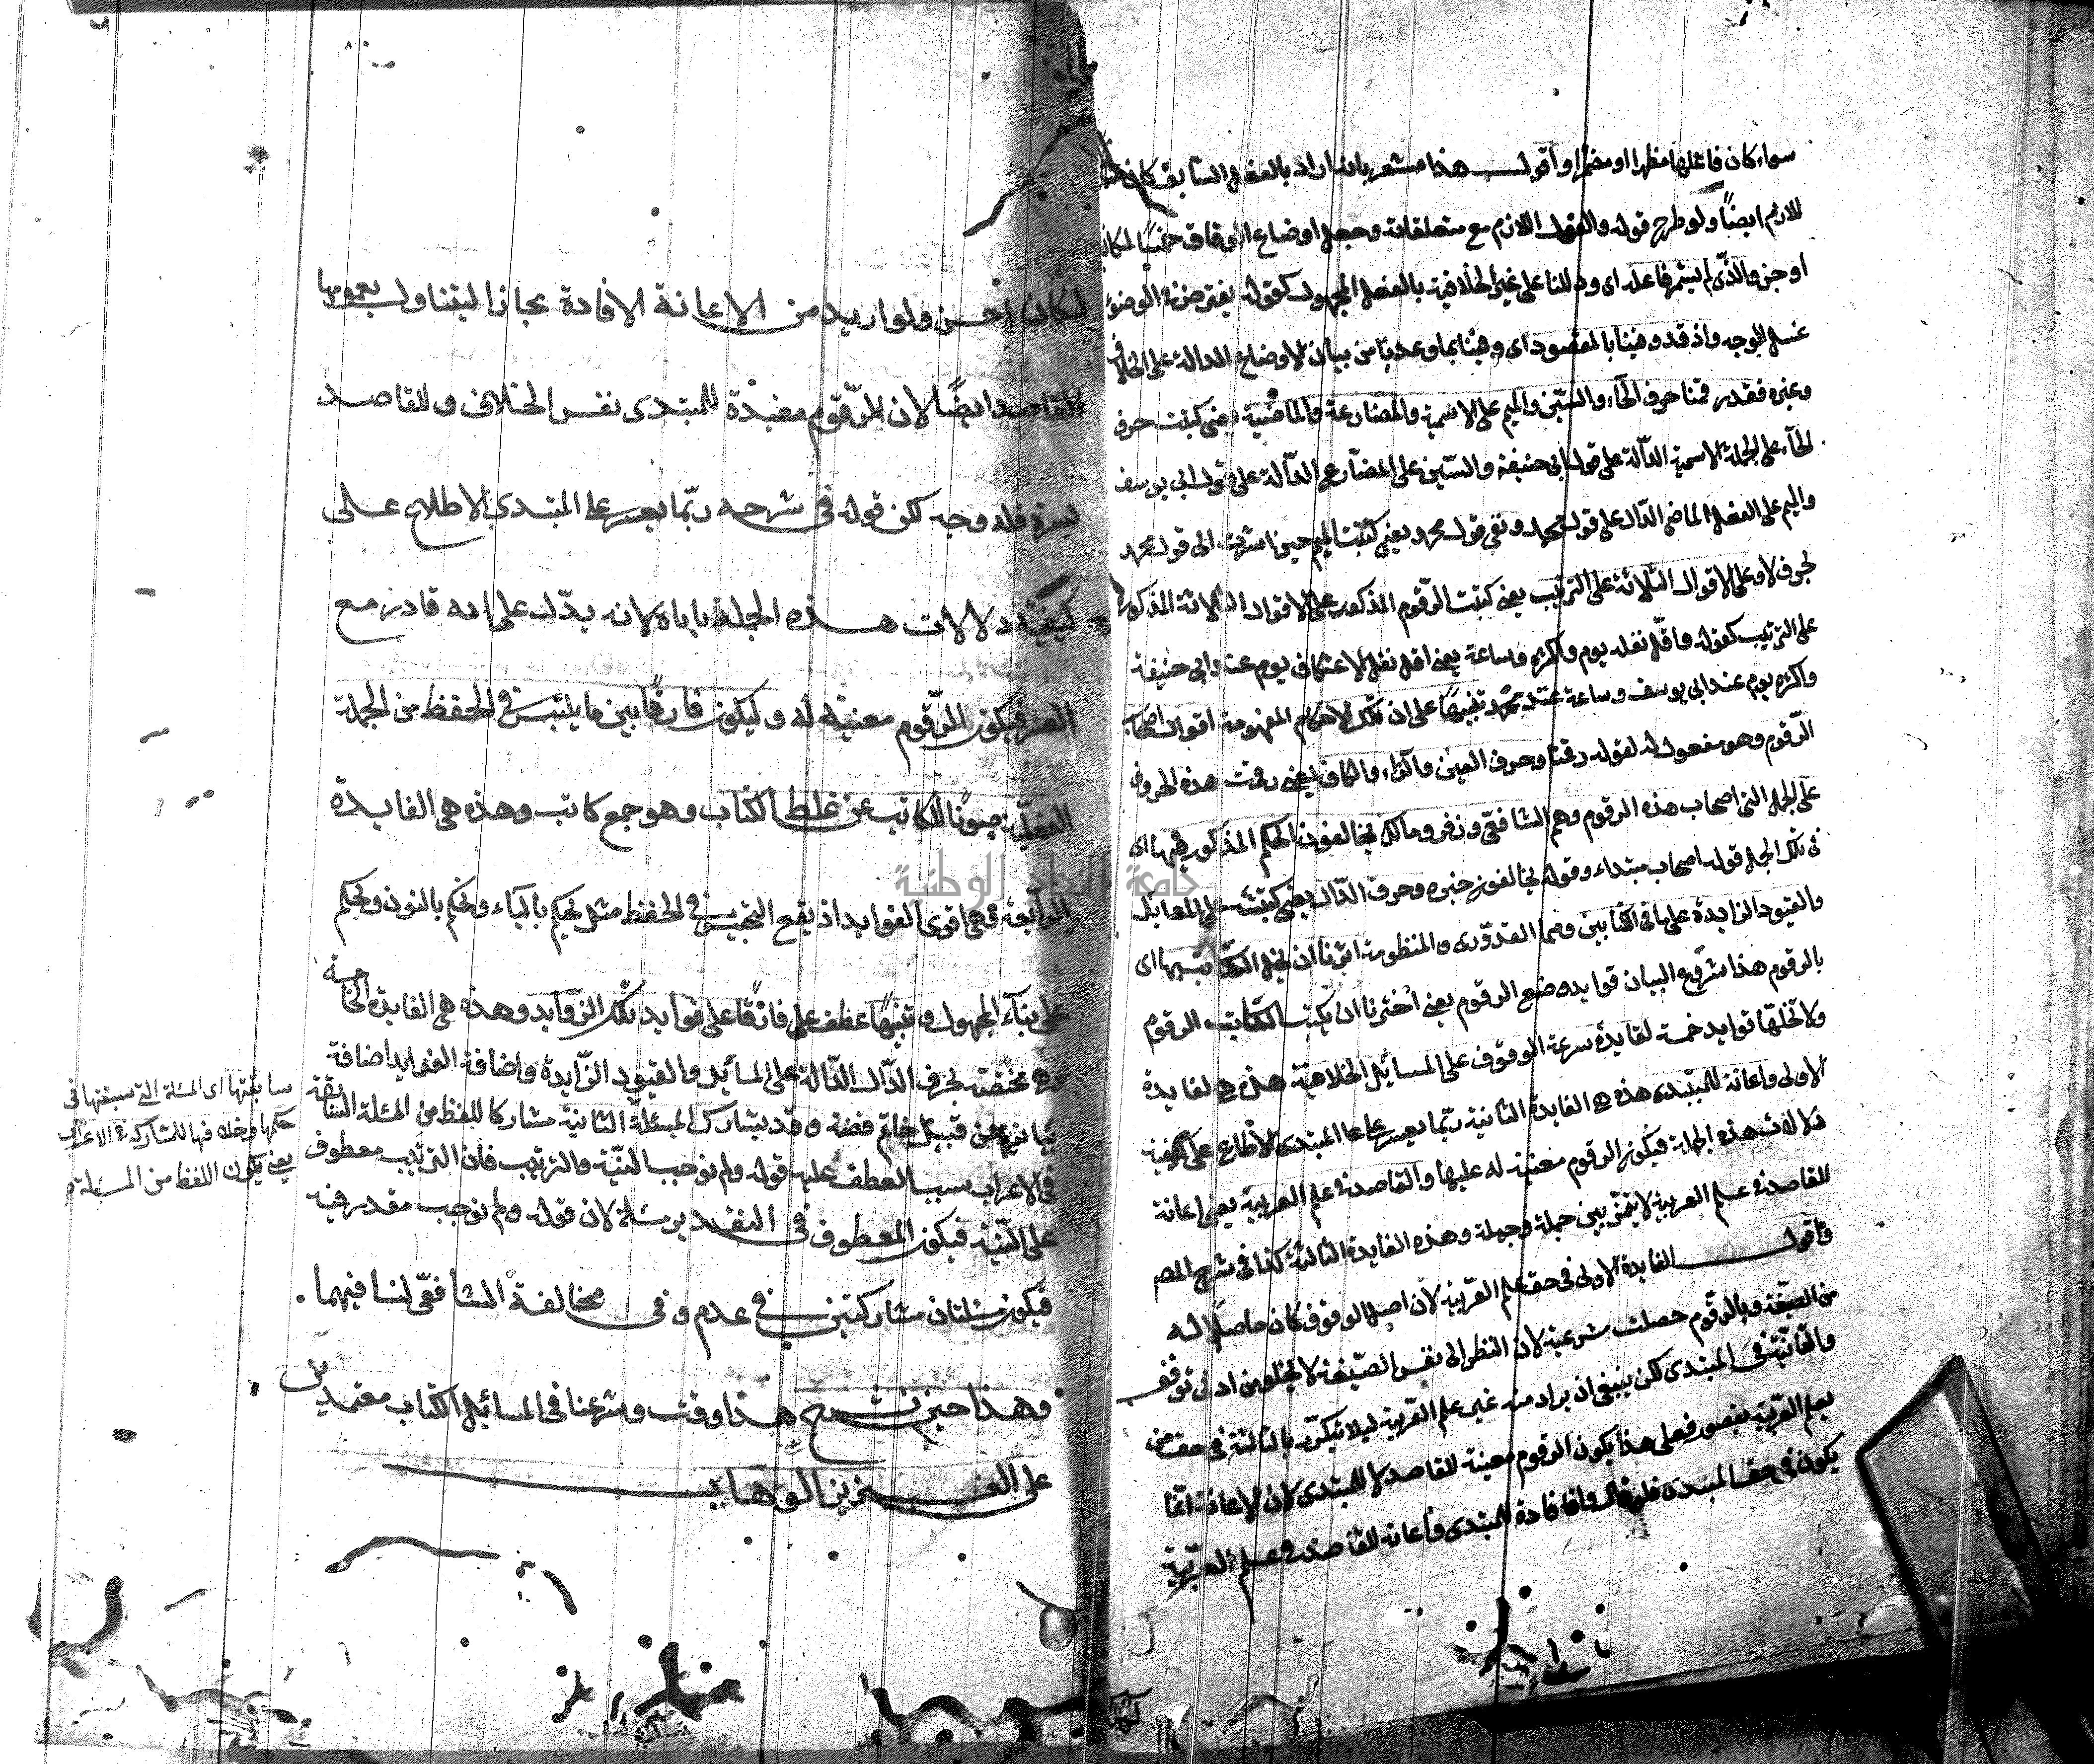 سواء كان فاعلها مظهرا او مضمرا واقول هذا مشعر بانه اراد بالفعل السابق كان
للازم ايضًا ولو طرح قوله والفعل اللازم مع متعلقاته وجعل اوضاع الوفاق خمسًا لكان
اوجز والذى لم يثمها عله اى ودللنا على غير الخلافية بالفعل المجهول كقوله يفترض فى الوضوء
غسل الوجه واذ قد وفينا بالمقصود اى وفينا بما وعدنا من بيان الاوضاع الدالة على الخلاف
وغيره فقد رقمنا حرف الحاء والسين والميم على الاسمية والمضارعة والماضية يعنى كتبت حرف
الحاء على الجملة الاسمية الدالة على قول ابى حنيفة والسين على المضارع الدالة على قول ابى يوسف
والميم على الفعل الماضى الدال على قول محمد ونفى قول محمد يعنى كتبت الميم حين اشرت الى قول محمد
بحرف لا وعلى الاقوال الثلاثة على الترتيب يعنى كتبت الرقوم المذكور على الاقوال الثلاثة المذكور
على الترتيب كقوله واقل نفله يوم واكثره وساعة يعنى اقل نفل الاعتكاف يوم عند ابى حنيفة
واكثره يوم عند ابى يوسف وساعة عند محمد تنبيهًا على ان تلك الاحكام المفهومة اقوال اصحاب
الرقوم وهو مفعول له لقوله رقمنا وحرف العين والزاء والكاف يعنى رقمت هذه الحروف
على الجمل التى اصحاب هذه الرقوم وهم الشافعى وزفر ومالك يخالفون الحكم المذكور فيها اى
فى تلك الجمل قوله اصحاب مبتداء وقوله يخالفون خبره وحرف الدال يعنى كتبت المسائل
والقيود الزايدة عليها فى الكتابين وهما القدورى والمنظومة اثرنا ان يخل الكتاب بتيها اى
بالرقوم هذا شروع البيان فوايد وضع الرقوم يعنى اخترنا ان يكتب الكاتب الرقوم
ولا تخلها فوايد خمسة لفايدة سرعة الوقوف على المسائل الخلافية هذه هى الفايدة
الاولى واعانة للمبتدى هذه هى الفايدة الثانية ربما يعسر على المبتدى الاطلاع على كيفية
دلالات هذه الجملة فيكون الرقوم معينة له عليها والقاصد فى علم العربية يعنى اعانة
للقاصد فى علم العربية لا يفرق بين جملة وجملة وهذه الفايدة الثالثة كذا فى شرح المص
واقول الفايدة الاولى فى حق علم العربية لان اصل الوقوف كان حاصلا له
من الصيغة وبالرقوم حصلت سرعته لان النظر الى نفس الصيغة لا يخلو من ادنى توقف
والثانية فى المبتدى لكن ينبغى ان يراد منه غير علم العربية ليلا يتكرر بالثالثة فى حق من
يعلم العربية بقصور فعلى هذا يكون الرقوم معينة للقاصد لا للمبتدى لان الاعانة انما
يكون فى حق المبتدى فلو قال وافادة للمبتدى واعانة للقاصد فى علم العربية
لكان احسن ولو اريد من الاعانة الافادة مجازا ليتناول بعمومها
القاصد ايضًا لان الرقوم مفيدة للمبتدى نفس الخلاف وللقاصد
يسرة فله وجه لكن قوله فى شرحه ربما يعسر على المبتدى الاطلاع على
كيفية دلالات هذه الجملة ياباه لانه يدل على انه قادر مع
العسر فيكون الرقوم معينة له وليكون فارقًا بين ما يلتبس فى الحفظ من الجملة
الفعلية صونًا للكاتب عن غلط الكتاب وهو جمع كاتب وهذه هى الفايدة
الرابعة وهى اقوى الفوايد اذ يقع التجنيس فى الحفظ مثل يحكم بالياء ونحكم بالنون ويحكم
على بناء المجهول وتنبيهًا عطف على فارقًا على فوايد تلك الزوايد وهذه هى الفايدة الخامسة
وهى مختصة بحرف الدال الدالة على المسائل والقيود الزايدة واضافة الفوايد اضافة
بيانية من قبيل خاتم فضة وقد يشارك المسئلة الثانية مشاركا للفظ من المسئلة السابقة
فى الاعراب بسبب العطف عليه قوله ولم نوجب النية والترتيب فان الترتيب معطوف
على النية فيكون المعطوف فى التقدير مسئلة لان قوله ولم نوجب مقدر فيه
فيكون مسئلتان مشاركتين فى عدم وفى مخالفة الشافعى لنا فيهما.
وهذا حين نشرح هذا وقت وشرعنا فى المسائل الكتاب معتمدين
على العزيز الوهاب
سابقتها اى المسئلة التى سبقتها فى
حكمها وخلافها للمشاركة فى الاعراب
يعنى يكون اللفظ من المسئلة
جامعة النجاح الوطنية